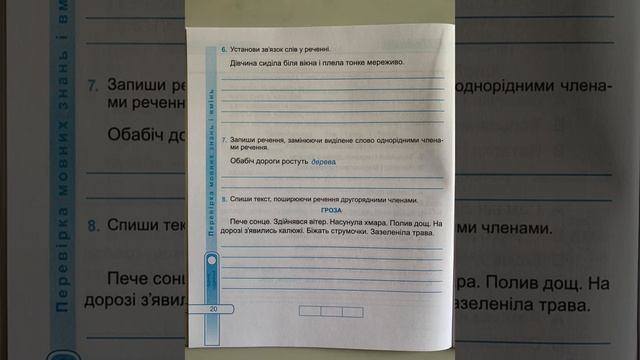 6. Установи зв'язок слів у реченні.
Дівчина сиділа біля вікна і плела тонке мереживо.
7. Запиши речення, замінюючи виділене слово однорідними члена-
ми речення.
Обабіч дороги ростуть дерева.
8. Спиши текст, поширюючи речення другорядними членами.
ГРОЗА
Пече сонце. Здійнявся вітер. Насунула хмара. Полив дощ. На
дорозі з'явились калюжі. Біжать струмочки. Зазеленіла трава.
Перевірка мовних знань і вмінь
20
7. Запиши ре
ми речення
Обабіч до
8. Спиши тек
Пече сонц
дорозі з'явил
Перевірка мовних знан
однорідними члена-
ми членами.
ра. Полив дощ. На
азеленіла трава.